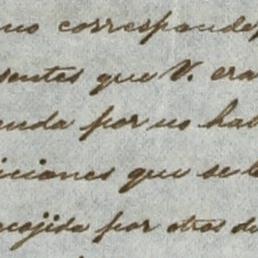 no corresponde
sentes que V. era
enda por no hab
iciones que se l
cojida por otros d